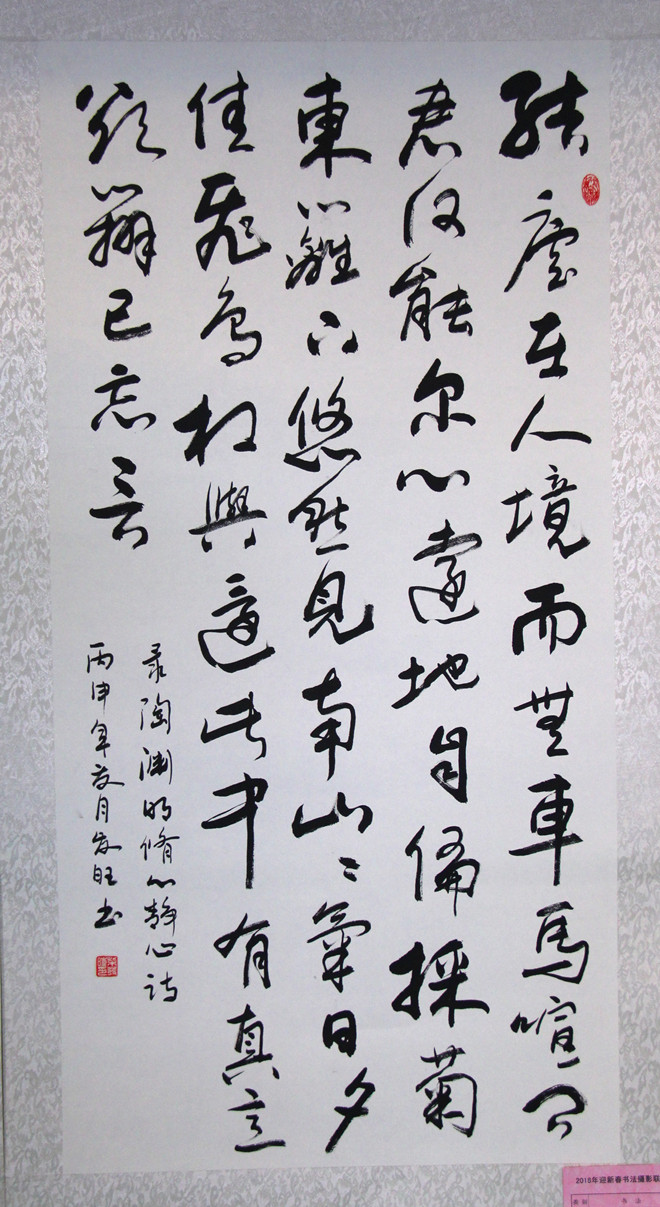 結廬在人境而無車馬喧问
君何能尔心遠地自偏採菊
東籬下悠然見南山〻氣日夕
佳飛鳥相與還此中有真意
欲辨已忘言
录陶渊明脩心静心詩
丙申年月旺书
2018年迎新春书法摄影联
类别 书法